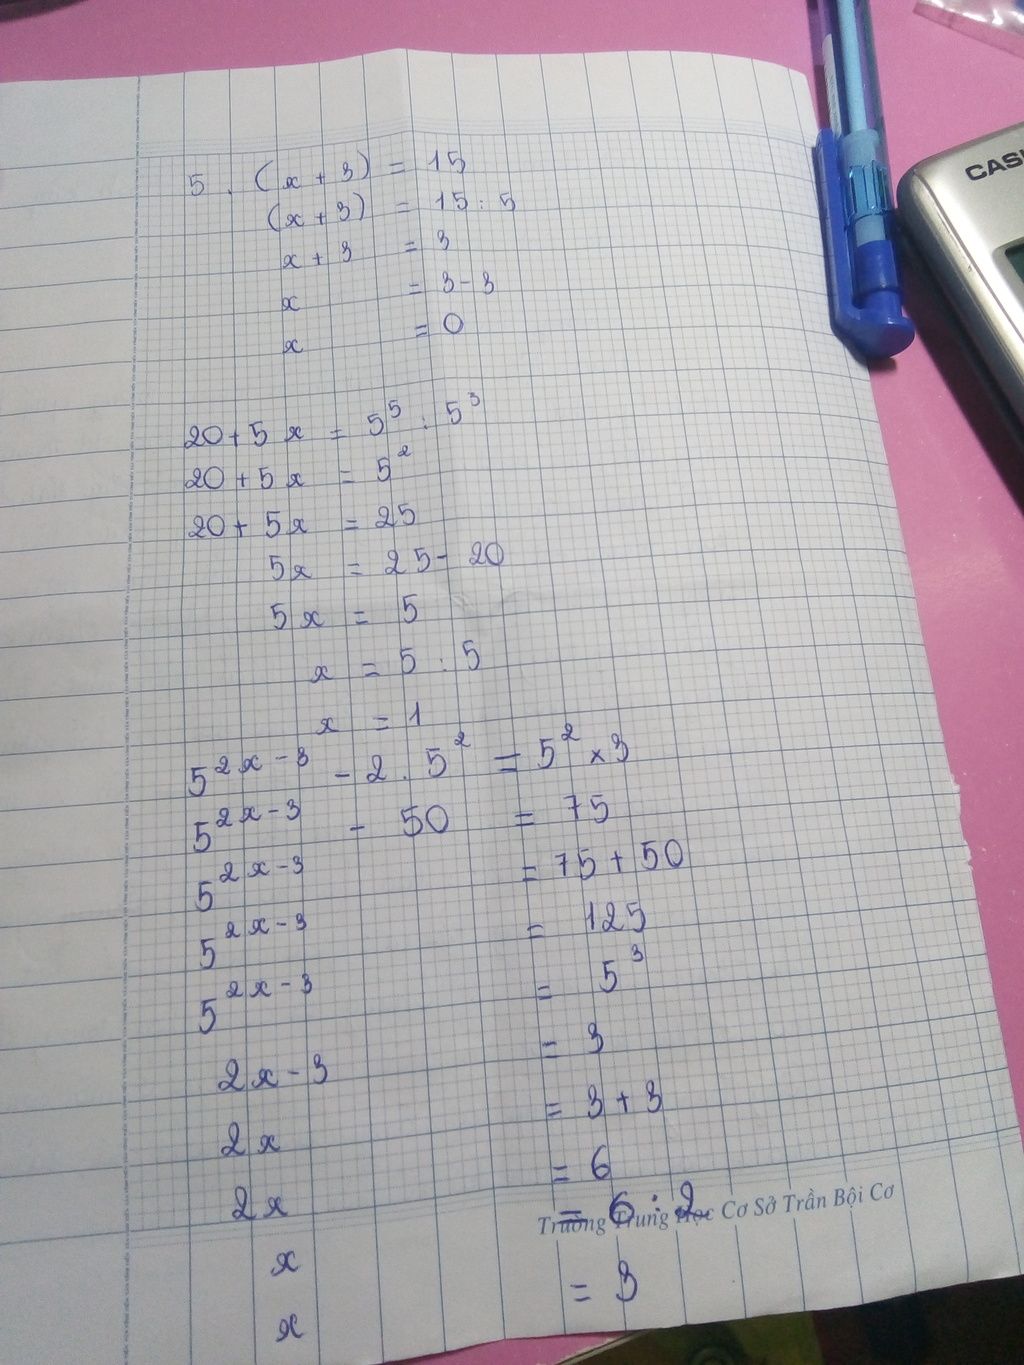 5 . (x + 3) = 15
(x + 3) = 15 : 5
x + 3 = 3
x = 3 - 3
x = 0
20 + 5x = 5⁵ : 5³
20 + 5x = 5²
20 + 5x = 25
5x = 25 - 20
5x = 5
x = 5 : 5
x = 1
5²ˣ⁻³ - 2 . 5² = 5² × 3
5²ˣ⁻³ - 50 = 75
5²ˣ⁻³ = 75 + 50
5²ˣ⁻³ = 125
5²ˣ⁻³ = 5³
2x - 3 = 3
2x = 3 + 3
2x = 6
x = 6 : 2
x = 3
Trường Trung Học Cơ Sở Trần Bội Cơ